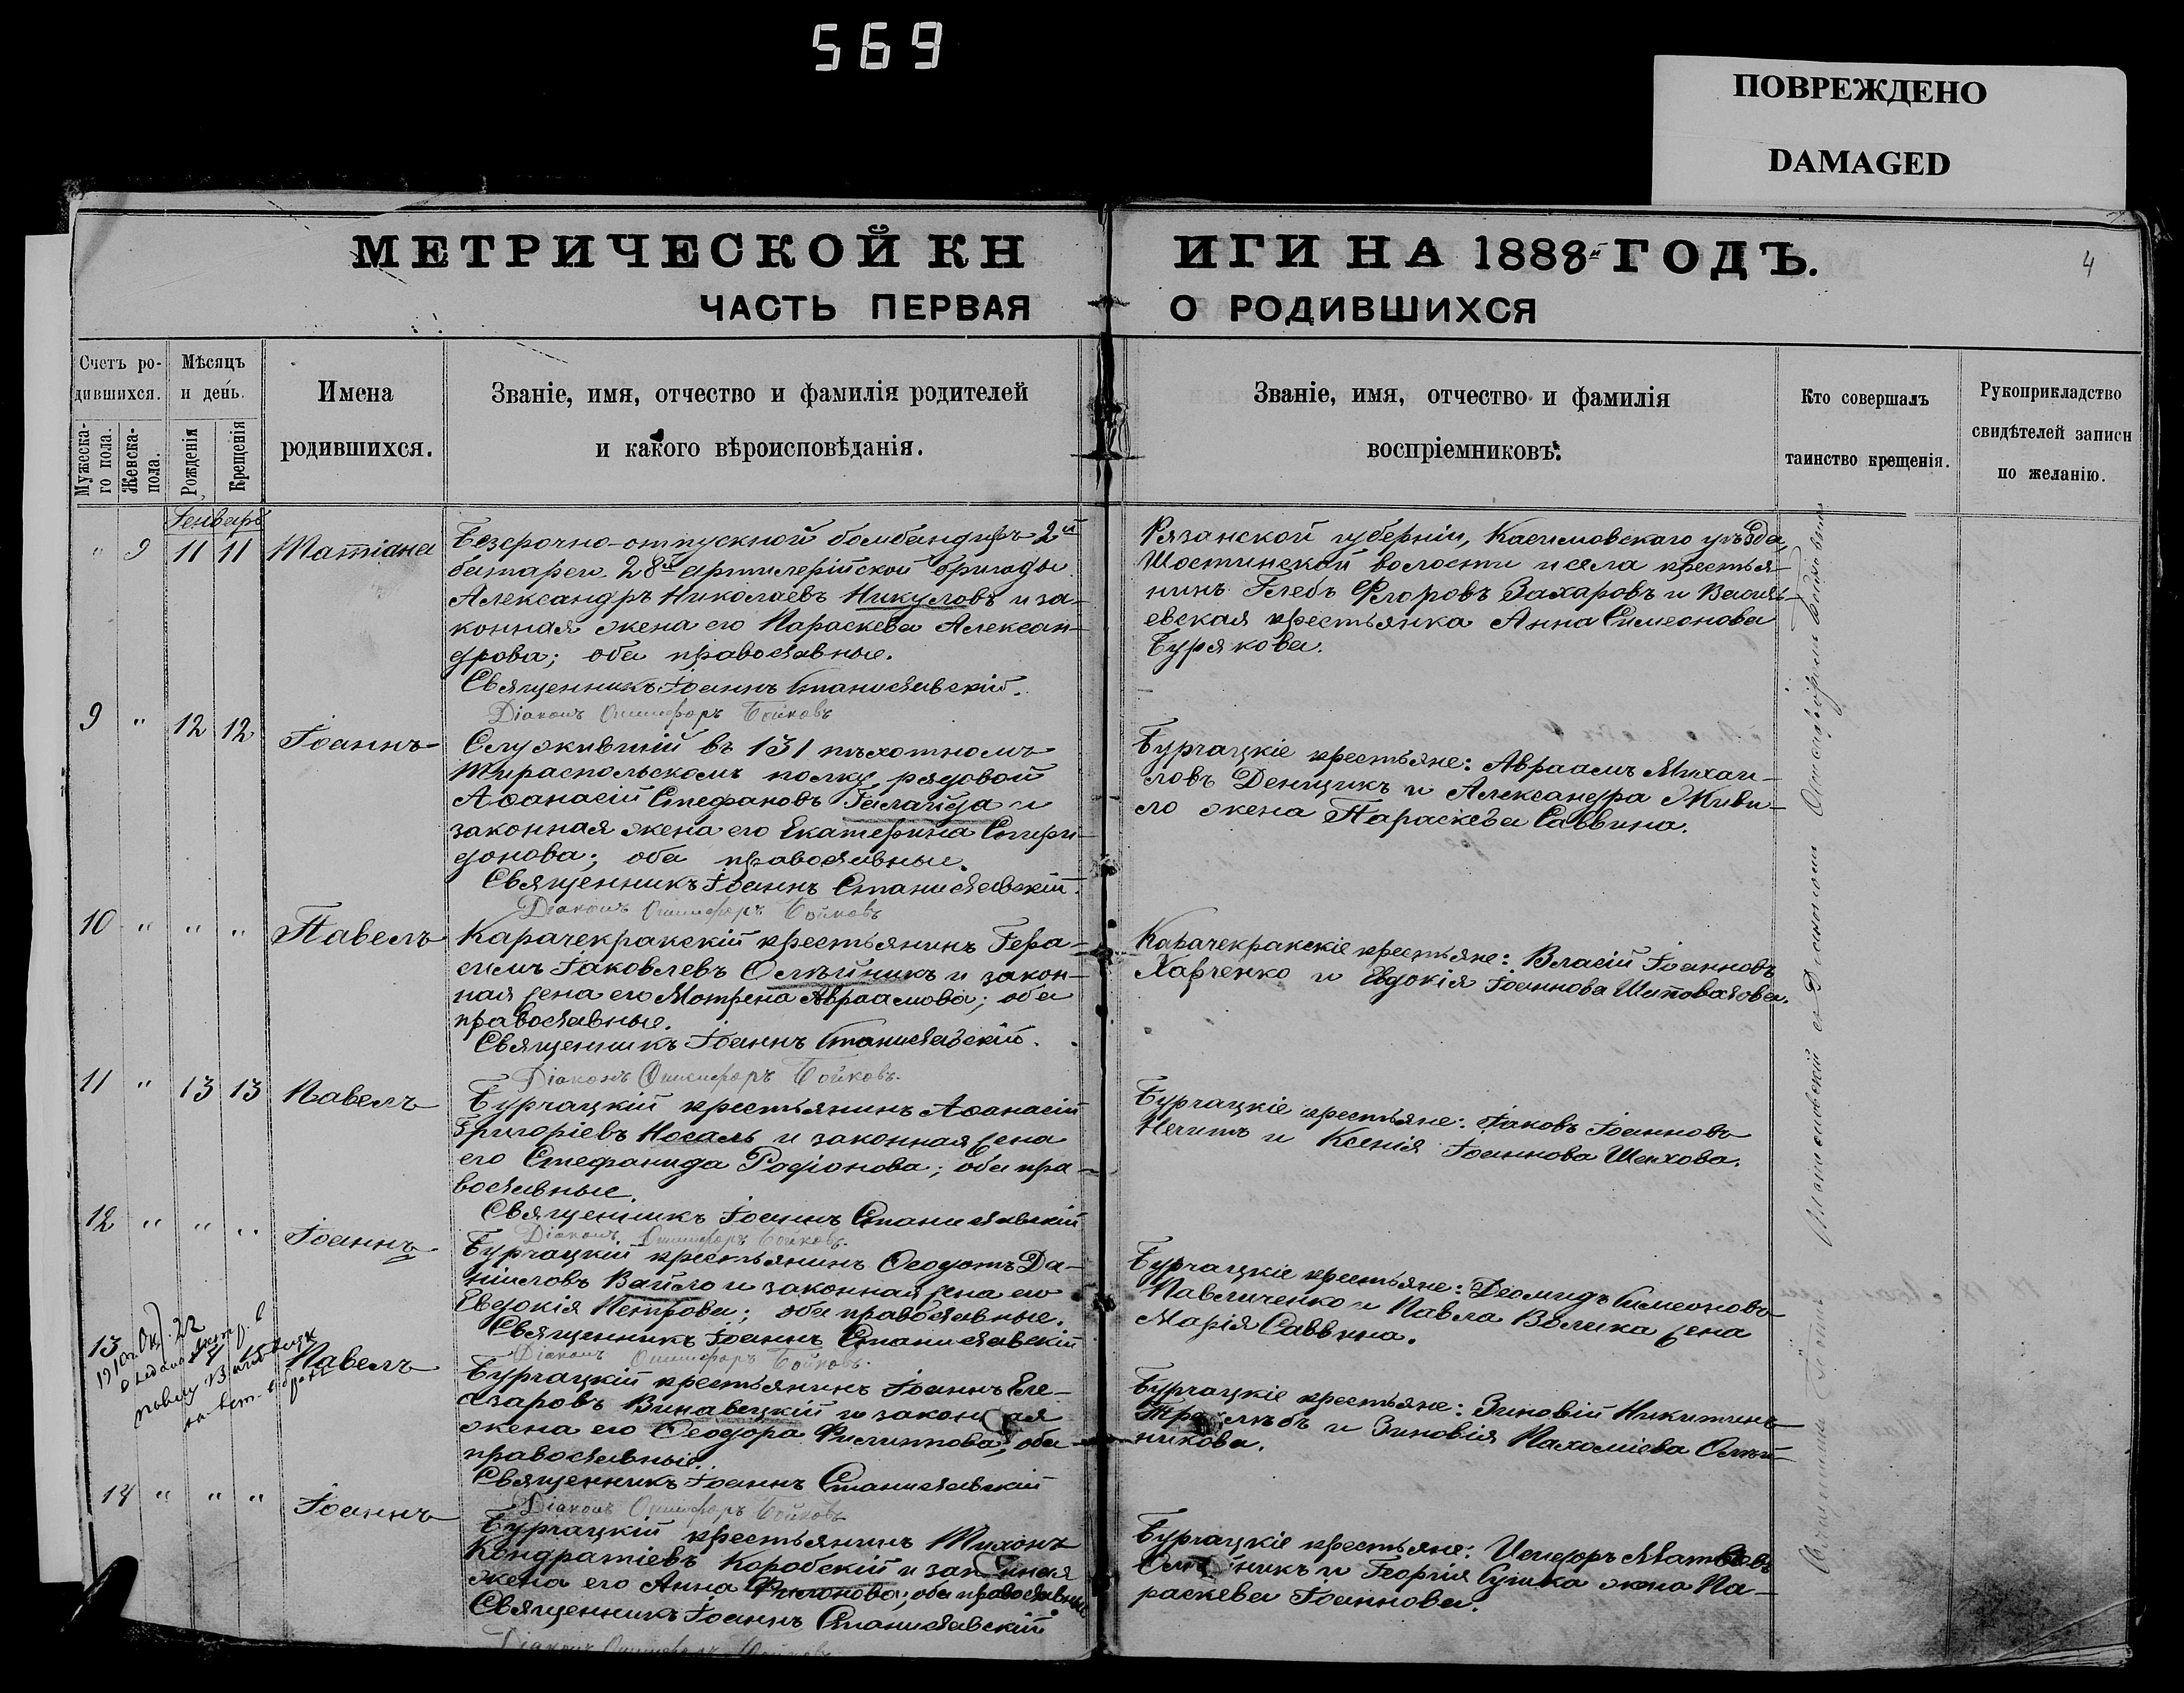 569
ПОВРЕЖДЕНО
DAMAGED
4
МЕТРИЧЕСКОЙ КНИГИ НА 1888й ГОДЪ.
ЧАСТЬ ПЕРВАЯ О РОДИВШИХСЯ
Счетъ ро-
дившихся.
Мужеска-
го пола.
Женска-
пола.
Мѣсяцъ
и день.
Рожденія
Крещенія
Имена
родившихся.
Званіе, имя, отчество и фамилія родителей
и какого вѣроисповѣданія.
Званіе, имя, отчество и фамилія
воспріемниковъ.
Кто совершалъ
таинство крещенія.
Рукоприкладство
свидѣтелей записи
по желанію.
Генварь
" 9 11 11 Татіана
Безсрочно-отпускной бомбандиръ 2й
батареи 28й артилерійской бригады
Александръ Николаевъ Никуловъ и за-
конная жена его Параскева Алексан-
дрова; оба православные.
Священникъ Іоаннъ Станиславскій.
Діаконъ Онисифоръ Бойковъ
Рязанской губерніи, Касимовскаго уѣзда,
Шостинской волости и села крестья-
нинъ Глебъ Флоровъ Захаровъ и Василь-
евская крестьянка Анна Симеонова
Бурякова.
9 " 12 12 Іоаннъ
Служившій въ 131 пѣхотномъ
Тираспольскомъ полку рядовой
Аѳанасій Стефановъ Галагуда и
законная жена его Екатерина Спири-
донова; оба православные.
Священникъ Іоаннъ Станиславскій.
Діаконъ Онисифоръ Бойковъ
Бурчацкіе крестьяне: Авраамъ Михаи-
ловъ Денщикъ и Александра Живи-
ло жена Параскева Саввина.
10 " " " Павелъ
Карачекракскій крестьянинъ Гера-
симъ Іаковлевъ Олѣйникъ и закон-
ная жена его Мотрена Авраамова; оба
православные.
Священникъ Іоаннъ Станиславскій.
Діаконъ Онисифоръ Бойковъ.
Карачекракскіе крестьяне: Власій Іоанновъ
Харченко и Евдокія Іоаннова Шаповалова.
11 " 13 13 Павелъ
Бурчацкій крестьянинъ Аѳанасій
Григоріевъ Носаль и законная жена
его Стефанида Родіонова; оба пра-
вославные.
Священникъ Іоаннъ Станиславскій
Діаконъ Онисифоръ Бойковъ.
Бурчацкіе крестьяне: Іаковъ Іоанновъ
Нечитъ и Ксенія Іоаннова Шахова.
12 " " " Іоаннъ
Бурчацкій крестьянинъ Ѳеодотъ Да-
ніиловъ Вайло и законная жена его
Евдокія Петрова; оба православные.
Священникъ Іоаннъ Станиславскій
Діаконъ Онисифоръ Бойковъ.
Бурчацкіе крестьяне: Деомидъ Симеоновъ
Павличенко и Павла Волика жена
Марія Саввина.
13 Павелъ
Бурчацкій крестьянинъ Іоаннъ Еле-
азаровъ Винавецкій и законная
жена его Ѳеодора Филиппова; оба
православные.
Священникъ Іоаннъ Станиславскій
Діаконъ Онисифоръ Бойковъ
Бурчацкіе крестьяне: Зиновій Никитинъ
и Зиновія Пахоміева Олѣй-
никова.
14 " " " Іоаннъ
Бурчацкій крестьянинъ Тихонъ
Кондратіевъ Коробскій и законная
жена его Анна; оба православные
Священникъ Іоаннъ Станиславскій
Діаконъ Онисифоръ Бойковъ
Бурчацкіе крестьяне: Никифоръ Матвѣевъ
Олѣйникъ и Георгія жена Па-
раскева Іоаннова.
Священникъ Іоаннъ Станиславскій съ Діакономъ Онисифоромъ Бойковымъ